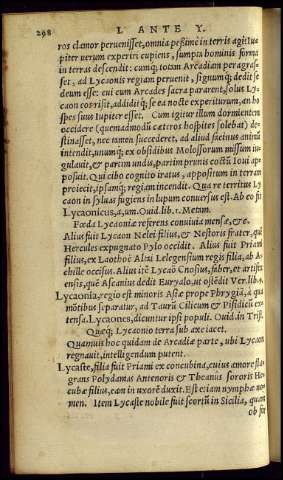 298 L ANTE Y.
ros clamor peruenisset, omnia peßimè in terris agi: Iu‑
piter verum experiri cupiens, sumpta hominis forma
in terras descendit: cumq́; totam Arcadiam peragras‑
set, ad Lycaonis regiam peruenit, signumq́; dedit se
deum esse: cui cum Arcades sacra pararent, solus Ly‑
caon eos risit, addiditq́; se ea nocte experiturum, an ho
spes suus Iupiter esset. Cum igitur illum dormientem
occidere (quemadmodũ cæteros hospites solebat) de‑
stinasset, nec tamen succederet, ad aliud facinus animũ
intendit, unumq́; ex obsidibus Molossorum missum iu‑
gulauit, & partim undis, partim prunis coctũ Ioui ap
posuit. Qui cibo cognito iratus, appositum in terram
proiecit, ipsamq́; regiam incendit. Qua re territus Ly
caon in syluas fugiens in lupum conuersus est. Ab eo fit
Lycaonicus, a, um. Ouid. lib. 1. Metam.
Fœda Lycaoniæ referens conuiuia mensæ, &c.
Alius fuit Lycaon Nelei filius, & Nestoris frater, quẽ
Hercules expugnato Pylo occidit. Alius fuit Priami
filius, ex Laothoë Altai Lelegensium regis filia, ab A‑
chille occisus. Alius itẽ Lycaõ Gnosius, faber, et artifex
ensis, quẽ Ascanius dedit Euryalo, ut ostẽdit Ver. lib. 9.
Lycaonia, regio est minoris Asiæ prope Phrygiã, à qua
mõtibus separatur, ad Taurũ Cilicum & Pisidicũ ex
tensa. Lycaones, dicuntur ipsi populi. Ouid. in Trist.
Quæq́; Lycaonio terra sub axe iacet.
Quamuis hoc quidam de Arcadiæ parte, ubi Lycaon
regnauit, intelligendum putent.
Lycaste, filia fuit Priami ex concubina, cuius amore fla
grans Polydamas Antenoris & Theanus sororis He‑
cubæ filius, eam in uxorẽ duxit. Est etiam nymphæ no‑
men. Item Lycaste nobile fuit scortũ in Sicilia, quam
ob for